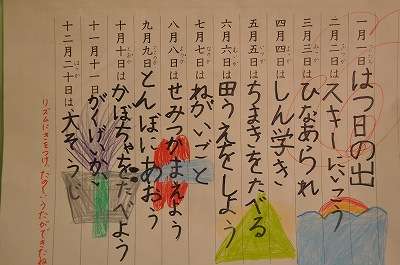 一月一日 はつ日の出
二月二日は スキーにいこう
三月三日は ひなあられ
四月四日は しん学き
五月五日は ちまきをたべる
六月六日は 田うえをしよう
七月七日は ねがいごと
八月八日は せみつかまえよう
九月九日は とんぼにあおう
十月十日は かぼちゃをたべよう
十一月十一日は がくげいかい
十二月二十日は、大そうじ
リズムにきをつけ、たのしいうたができたね